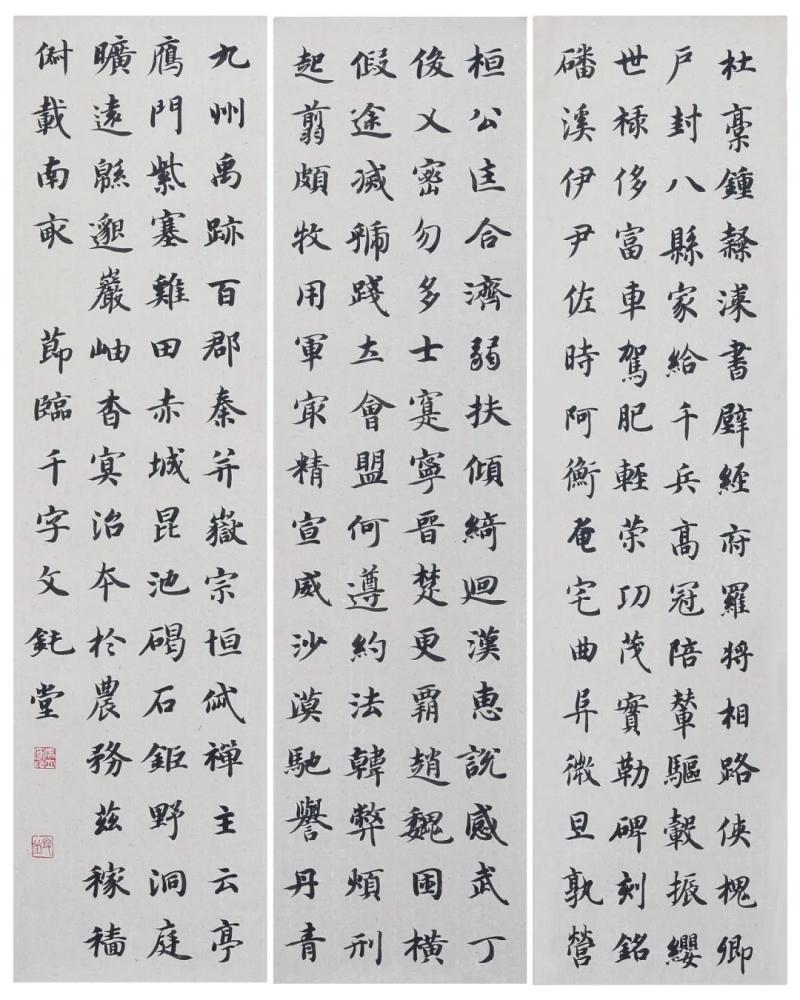 杜稾鍾隸漆書壁經府羅將相路俠槐卿
戶封八縣家給千兵高冠陪輦驅轂振纓
世祿侈富車駕肥輕策功茂實勒碑刻銘
磻溪伊尹佐時阿衡奄宅曲阜微旦孰營
桓公匡合濟弱扶傾綺迴漢惠說感武丁
俊乂密勿多士寔寧晉楚更霸趙魏困橫
假途滅虢踐土會盟何遵約法韓弊煩刑
起翦頗牧用軍最精宣威沙漠馳譽丹青
九州禹跡百郡秦并嶽宗恒岱禪主云亭
鴈門紫塞雞田赤城昆池碣石鉅野洞庭
曠遠緜邈巖岫杳冥治本於農務茲稼穡
俶載南畝 節臨千字文鈍堂